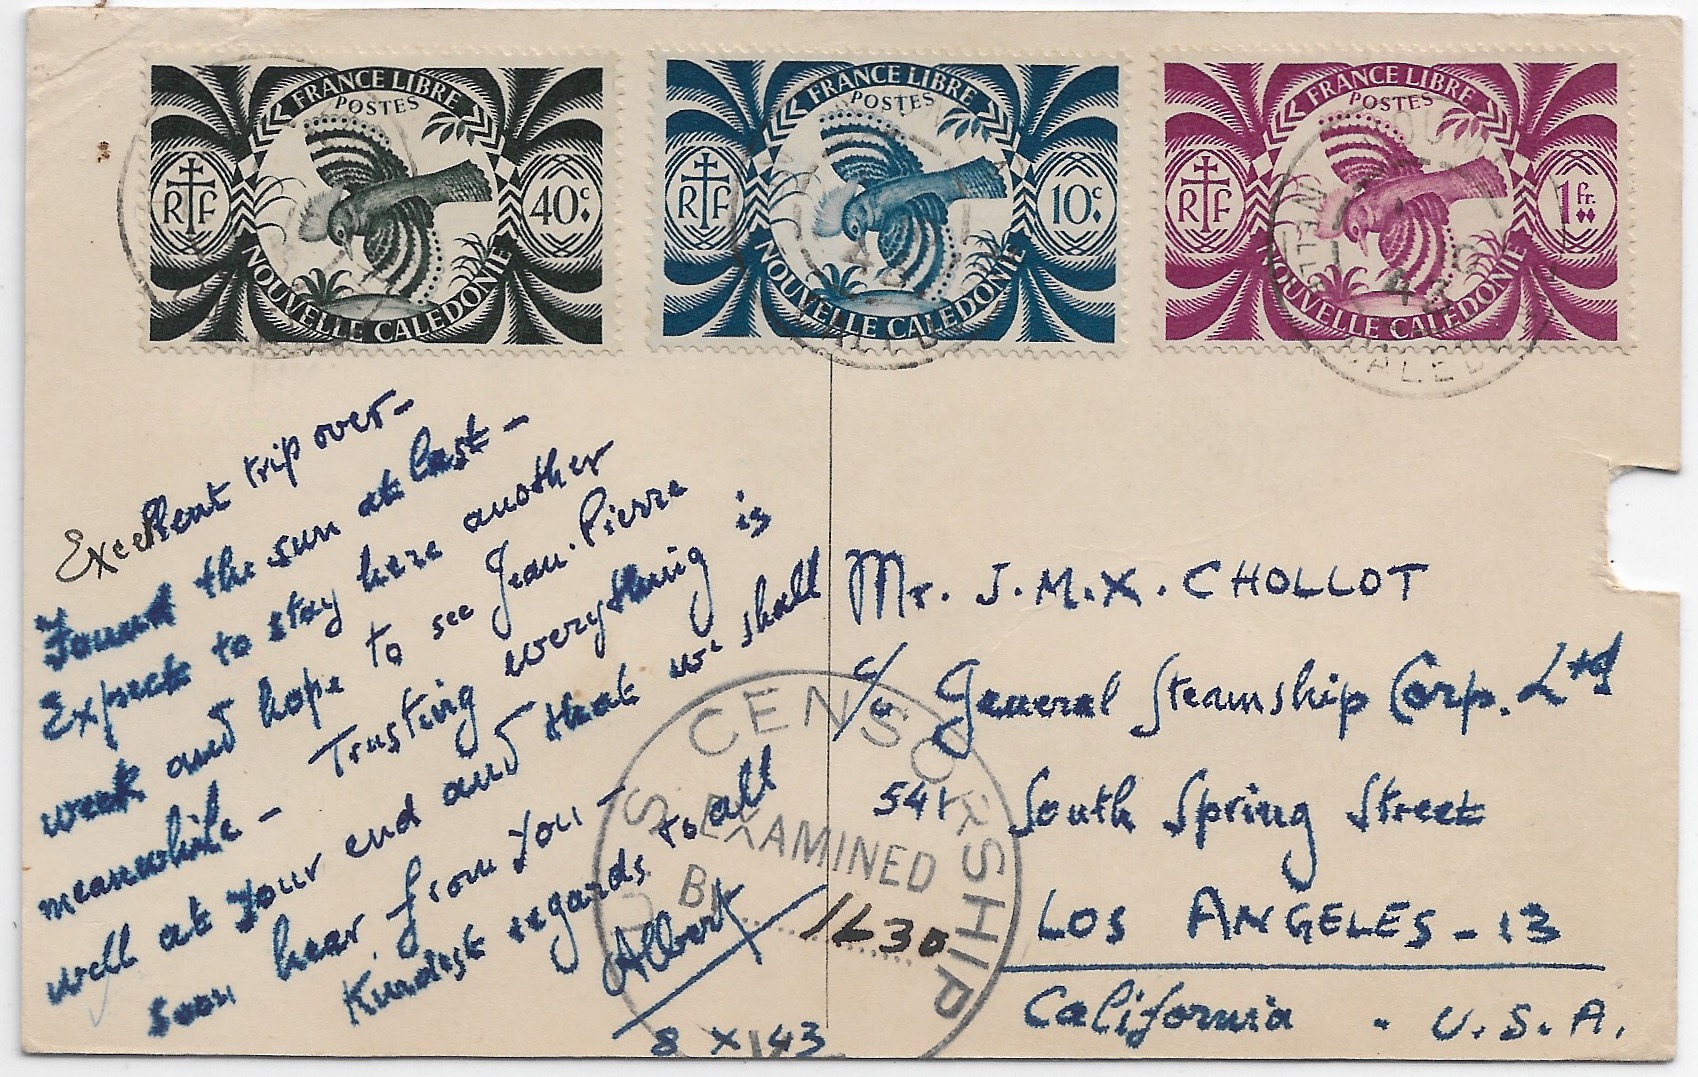 FRANCE LIBRE
POSTES
RF
40c
NOUVELLE CALEDONIE
FRANCE LIBRE
POSTES
RF
10c
NOUVELLE CALEDONIE
FRANCE LIBRE
POSTES
RF
1fr.
NOUVELLE CALEDONIE
Excellent trip over-
Found the sun at last -
Expect to stay here another
week and hope to see Jean-Pierre
meanwhile - Trusting everything is
well at your end and that we shall
soon hear from you -
Kindest regards to all
Albert
8 X 43
U.S. CENSORSHIP
EXAMINED
BY 1630
Mr. J.M.X. CHOLLOT
c/o General Steamship Corp. Ltd
541 South Spring Street
LOS ANGELES - 13
California . U.S.A.